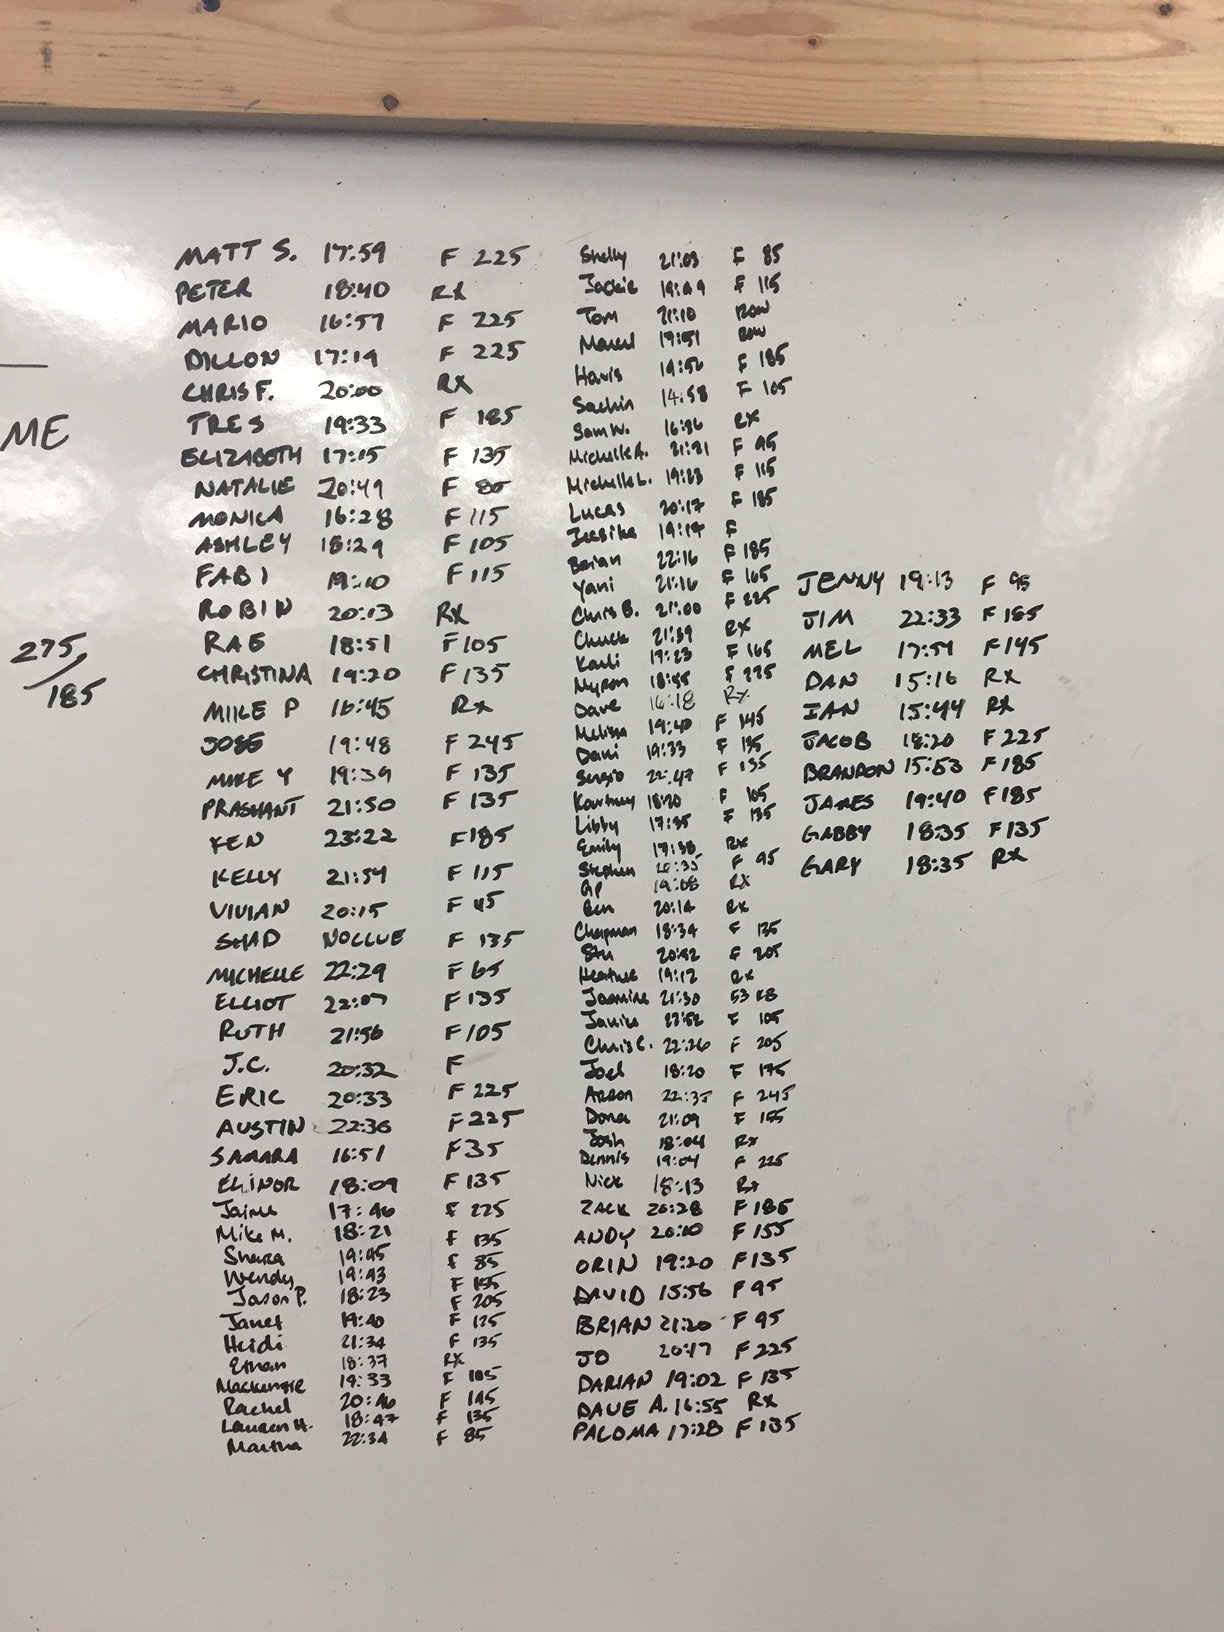 ME
275/
185
MATT S. 17:59 F 225
PETER 18:40 RX
MARIO 16:57 F 225
DILLON 17:19 F 225
CHRIS F. 20:00 RX
TRES 19:33 F 185
ELIZABETH 17:15 F 135
NATALIE 20:49 F 80
MONICA 16:28 F 115
ASHLEY 18:29 F 105
FABI 19:10 F 115
ROBIN 20:13 RX
RAE 18:51 F 105
CHRISTINA 19:20 F 135
MIKE P 16:45 Rx
JOSE 19:48 F 245
MIKE Y 19:39 F 135
PRASHANT 21:50 F 135
KEN 23:22 F 185
KELLY 21:54 F 115
VIVIAN 20:15 F 45
SHAD NOCLUE F 135
MICHELLE 22:29 F 65
ELLIOT 22:07 F 135
RUTH 21:56 F 105
J.C. 20:32 F
ERIC 20:33 F 225
AUSTIN 22:36 F 225
SAMARA 16:51 F 35
ELINOR 18:09 F 135
Jaime 17:46 F 225
Mike M. 18:21 F 135
Shara 19:45 F 85
Wendy 19:43 F
Jason P. 18:23 F 205
Janet 19:40 F 125
Heidi 21:34 F 135
Ethan 18:37 RX
Mackenzie 19:33 F 105
Rachel 20:46 F 145
Lauren H. 18:47 F 135
Martha 22:34 F 85
Shelly 21:03 F 85
Jackie 19:49 F 115
Tom 21:10 ROW
Marcel 17:51 ROW
Havis 19:56 F 185
Sachin 14:58 F 105
Sam W. 16:36 RX
Michelle A. 21:21 F 95
Michelle L. 19:23 F 115
Lucas 20:17 F 185
Jessika 19:19 F
Brian 22:16 F 185
Yani 21:16 F 165
Chris B. 21:00 F 225
Chuck 21:39 RX
Karli 17:23 F 165
Myron 18:55 F 225
Dave 16:18 Rx
Melissa 19:40 F 145
Dani 19:33 F 135
Sergio 22:47 F 135
Kourtney 18:20 F 105
Libby 17:35 F 135
Emily 17:38 RX
Stephen 20:35 F 95
GP 19:08 RX
Ben 20:14 RX
Chapman 18:34 F 135
Stu 20:42 F 205
Heather 19:12 RX
Jasmine 21:30 53 KB
Janice 22:52 F 105
Chris C. 22:26 F 205
Joel 18:20 F 175
Arron 22:37 F 245
Dona 21:09 F 155
Josh 18:04 Rx
Dennis 19:04 F 225
Nick 18:13 Rx
ZACK 20:28 F 185
ANDY 20:10 F 155
ORIN 19:20 F 135
DAVID 15:56 F 95
BRIAN 21:20 F 95
JO 20:17 F 225
DARIAN 19:02 F 135
DAVE A. 16:55 RX
PALOMA 17:28 F 135
JENNY 19:13 F 95
JIM 22:33 F 185
MEL 17:59 F 145
DAN 15:16 RX
IAN 15:44 RX
JACOB 18:20 F 225
BRANDON 15:53 F 185
JAMES 19:40 F 185
GABBY 18:35 F 135
GARY 18:35 RX